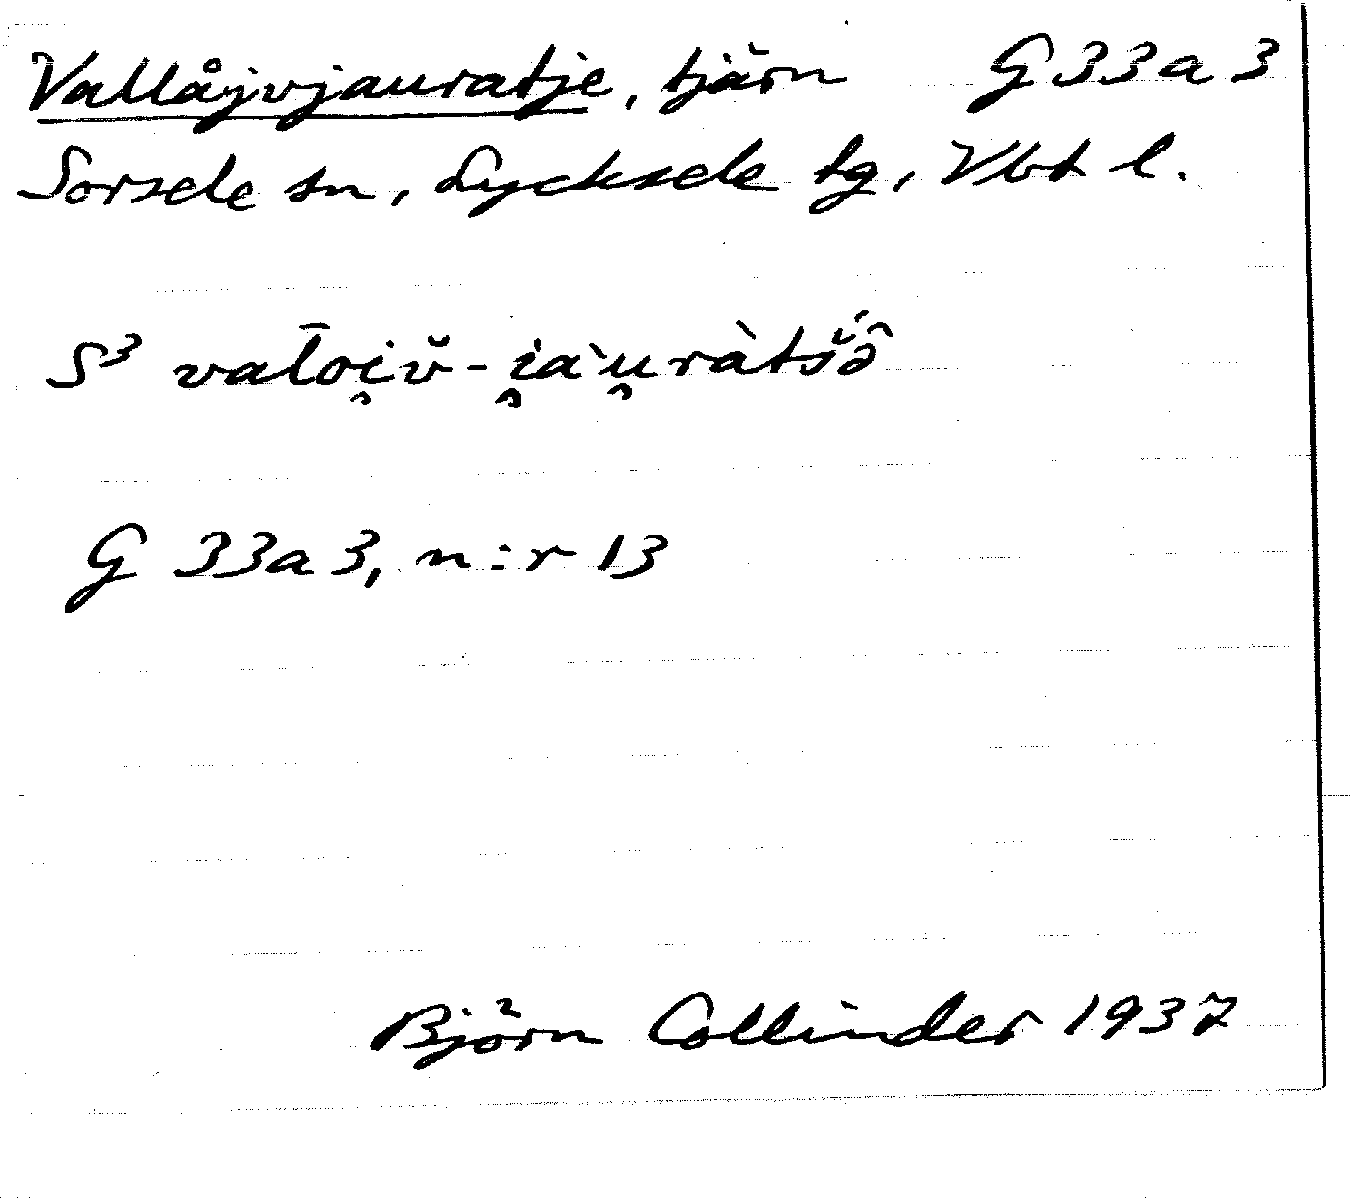 Vallåjvjauratje, tjärn G 33a 3
Sorsele sn, Lycksele tg, Vbt l.
S³
G 33a 3, n:r 13
Björn Collinder 1937